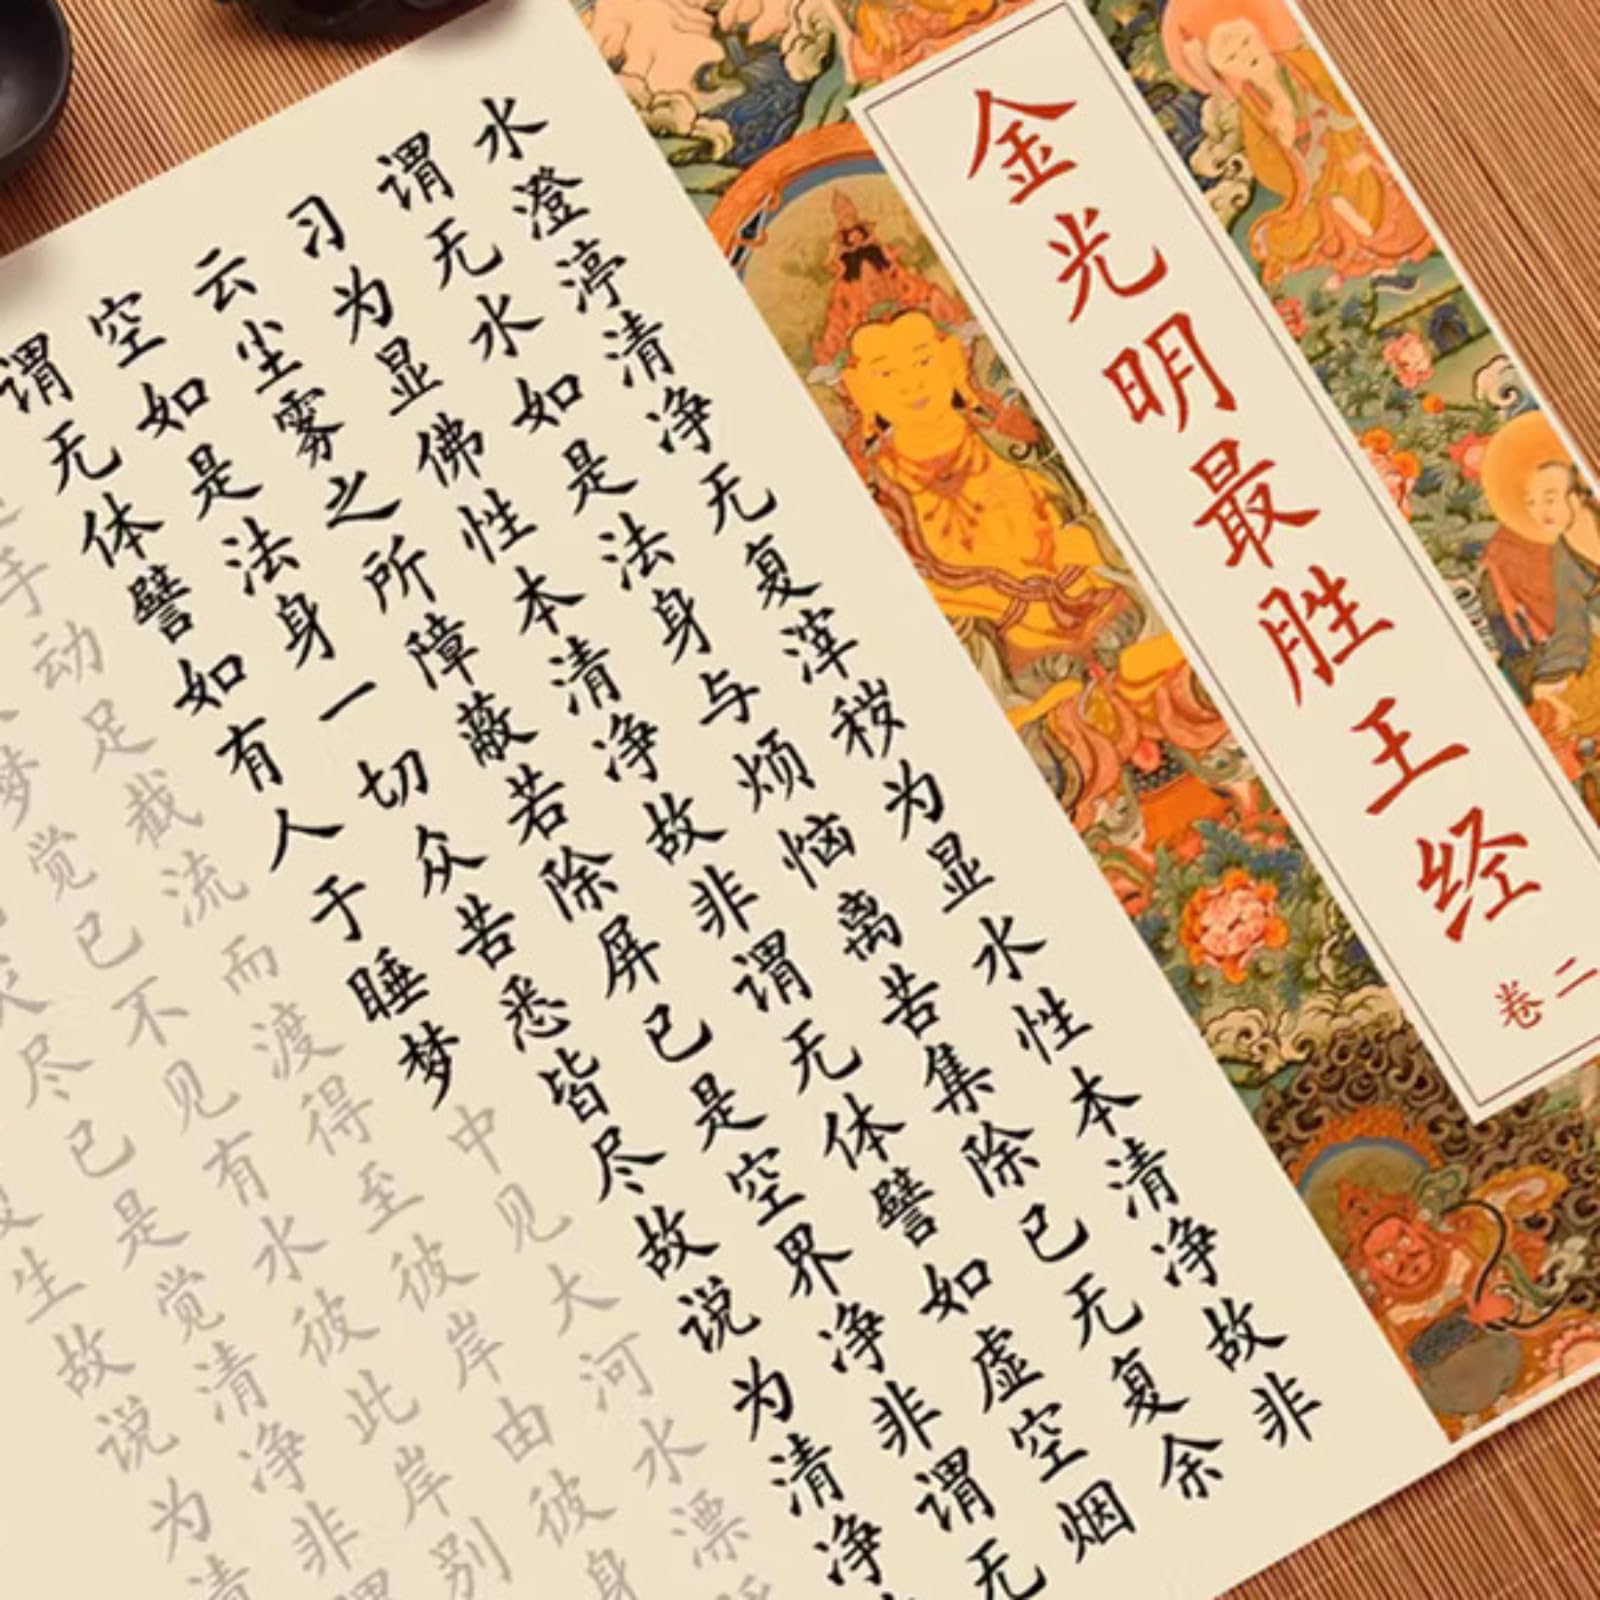 金光明最胜王经
卷二
水澄渟清净无复滓秽为显水性本清净故非
谓无水如是法身与烦恼离苦集除已无复余
习为显佛性本清净故非谓无体譬如虚空烟
云尘雾之所障蔽若除屏已是空界净非谓无
空如是法身一切众苦悉皆尽故说为清净
谓无体譬如有人于睡梦中见大河水漂
手动足截流而渡得至彼岸由彼身
梦觉已不见有水彼此岸别
尽已是觉清净非
生故说为清